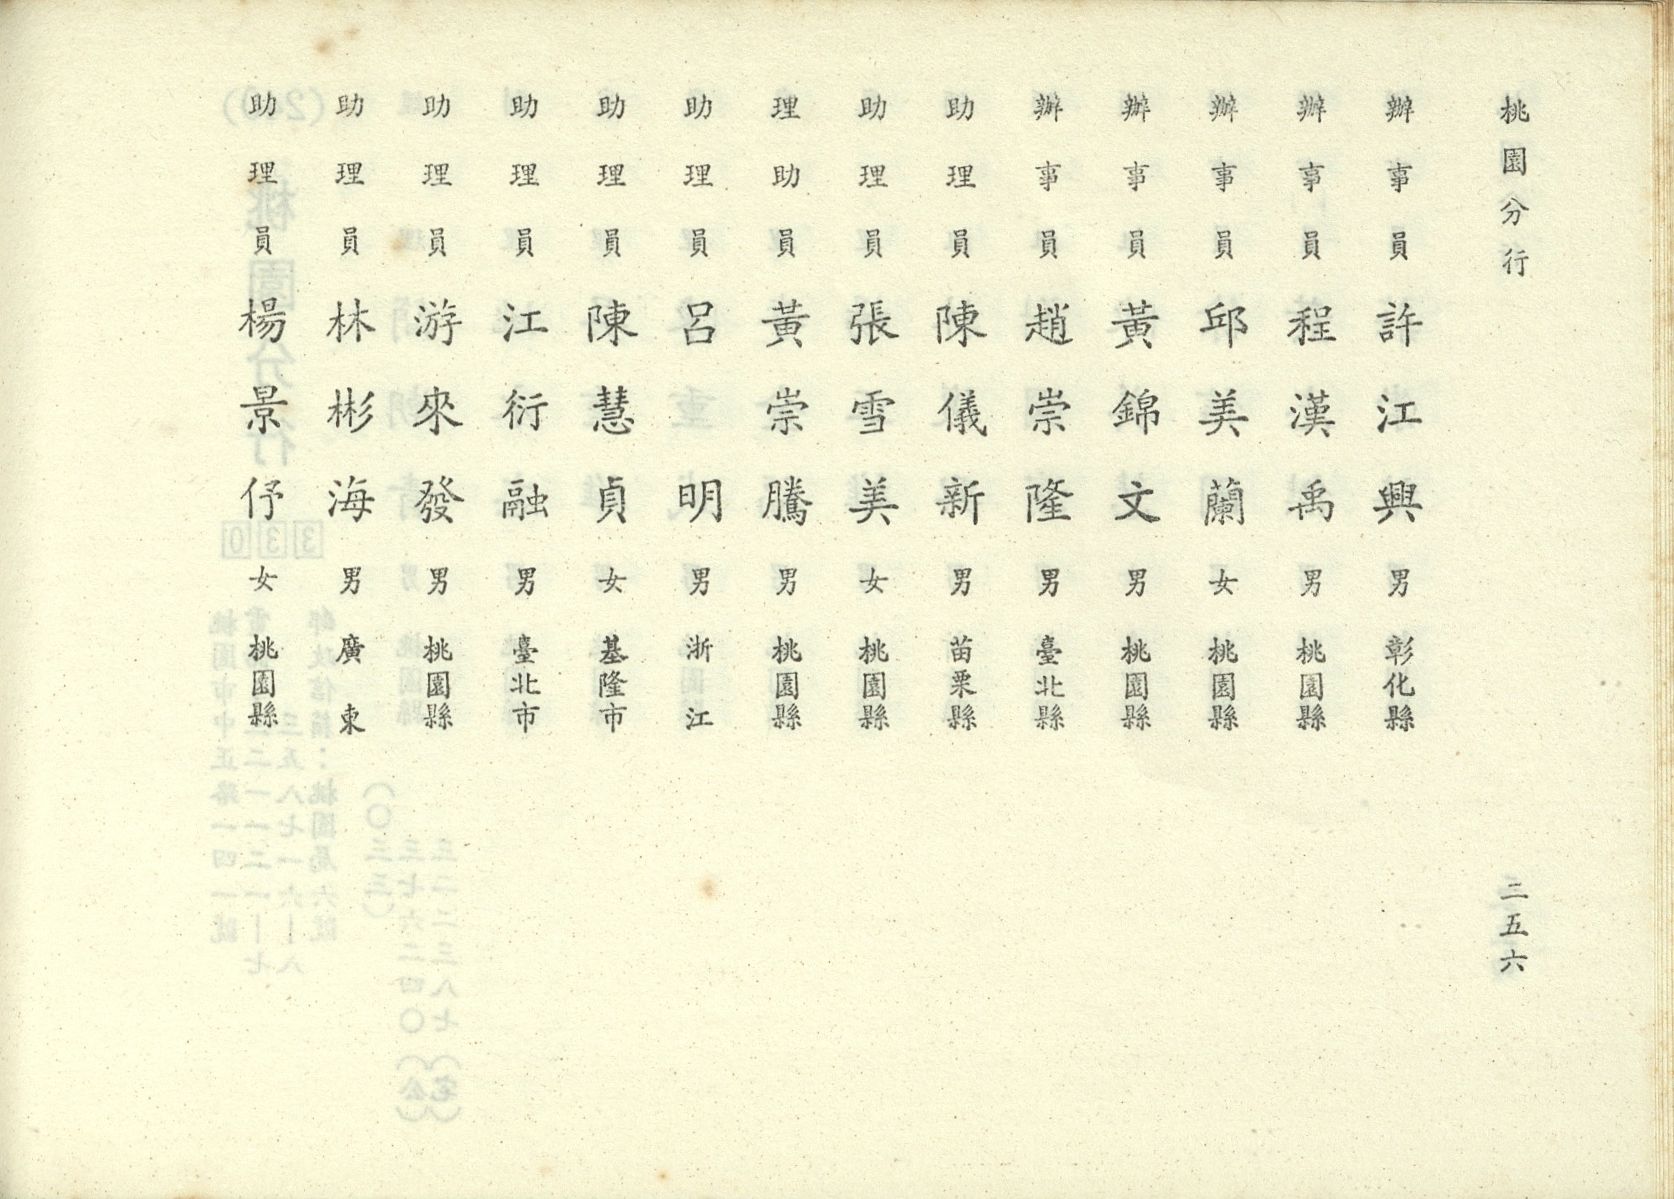 桃園分行
二五六
辦事員 許江興 男 彰化縣
辦事員 程漢禹 男 桃園縣
辦事員 邱美蘭 女 桃園縣
辦事員 黃錦文 男 桃園縣
辦事員 趙崇隆 男 臺北縣
助理員 陳儀新 男 苗栗縣
助理員 張雪美 女 桃園縣
理助員 黃崇騰 男 桃園縣
助理員 呂明 男 浙江
助理員 陳慧貞 女 基隆市
助理員 江衍融 男 臺北市
助理員 游來發 男 桃園縣
助理員 林彬海 男 廣東
助理員 楊景伃 女 桃園縣